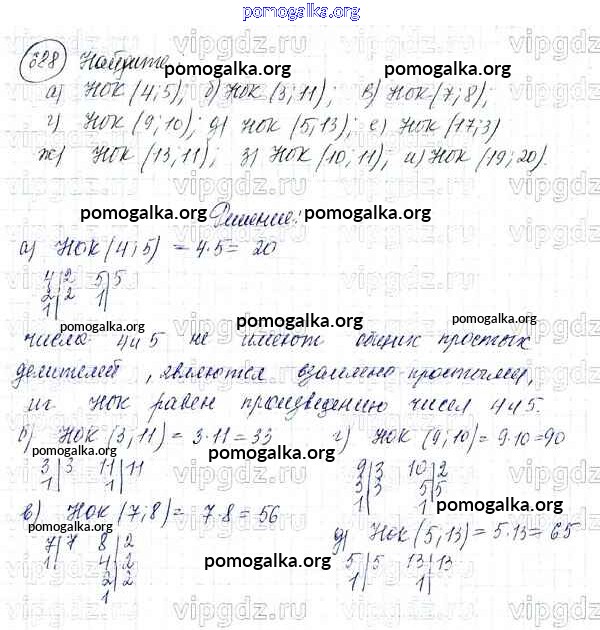 pomogalka.org
628 Найдите pomogalka.org pomogalka.org
а) НОК (4;5); б) НОК (3;11); в) НОК (7;8);
г) НОК (9;10); д) НОК (5,13); е) НОК (17;3)
ж) НОК (13,11); з) НОК (10;11); и) НОК (19;20).
pomogalka.org Решение: pomogalka.org
а) НОК (4;5) = 4·5 = 20
4|2 5|5
2|2 1|
1|
pomogalka.org pomogalka.org
числа 4 и 5 не имеют общих простых
делителей, являются взаимно-простыми,
их НОК равен произведению чисел 4 и 5.
б) НОК (3,11) = 3·11 = 33
3|3 11|11
1| 1|
г) НОК (9;10) = 9·10 = 90
9|3 10|2
3|3 5|5
1| 1|
в) НОК (7;8) = 7·8 = 56
7|7 8|2
1| 4|2
2|2
1|
д) НОК (5,13) = 5·13 = 65
5|5 13|13
1| 1|
pomogalka.org
pomogalka.org
pomogalka.org
pomogalka.org
vipgdz.ru